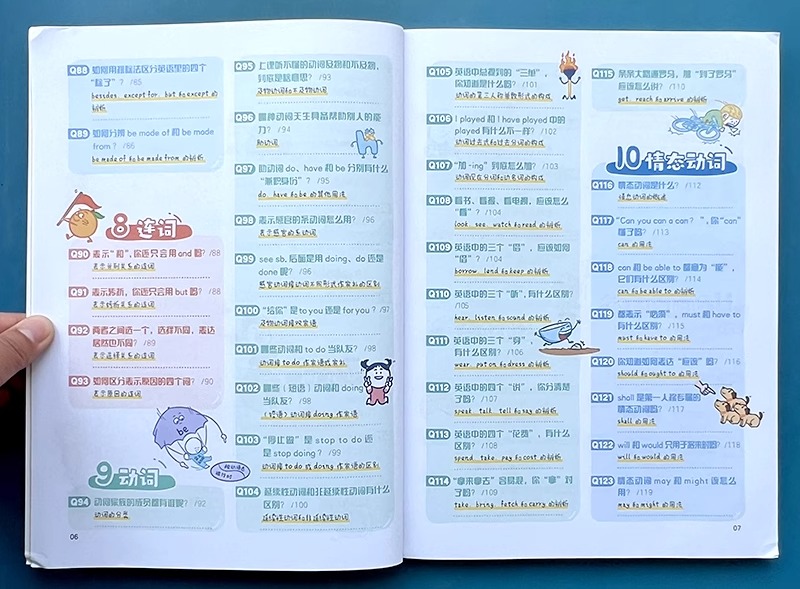 Q88 如何用排除法区分英语里的四个
“除了”？ /85
besides、except for、but 和 except 的
辨析
Q89 如何分辨 be made of 和 be made
from？ /86
be made of 和 be made from 的辨析
8 连词
Q90 表示“和”，你还只会用 and 吗？ /88
表示并列关系的连词
Q91 表示转折，你还只会用 but 吗？ /88
表示转折关系的连词
Q92 两者之间选一个，选择不同，表达
居然也不同？ /89
表示选择关系的连词
Q93 如何区分表示原因的四个词？ /90
表示原因的连词
be
9 动词
Q94 动词家族的成员都有谁呢？ /92
动词的分类
06
Q95 上课听不懂的动词及物和不及物，
到底是啥意思？ /93
及物动词和不及物动词
Q96 哪种动词天生具备帮助别人的能
力？ /94
助动词
Q97 助动词 do、have 和 be 分别有什么
“兼职身份”？ /95
do、have 和 be 的其他用法
Q98 表示感官的系动词怎么用？ /96
表示感官的系动词
Q99 see sb. 后面是用 doing、do 还是
done 呢？ /96
感官动词接动词不同形式作宾补的区别
Q100 “给你”是 to you 还是 for you？ /97
及物动词接双宾语
Q101 哪些动词和 to do 当队友？ /98
动词接 to do 作宾语或宾补
Q102 哪些（短语）动词和 doing
当队友？ /98
（短语）动词接 doing 作宾语
Q103 “停止做”是 stop to do 还
是 stop doing？ /99
动词接 to do 或 doing 作宾语的区别
Q104 延续性动词和非延续性动词有什么
区别？ /100
延续性动词和非延续性动词
Q105 英语中总看到的“三单”，
你知道是什么吗？ /101
动词的第三人称单数形式的构成
Q106 I played 和 I have played 中的
played 有什么不一样？ /102
动词过去式和过去分词的构成
Q107 “加 -ing”到底怎么加？ /103
动词现在分词和动名词的构成
Q108 看书、看报、看电视，应该怎么
“看”？ /104
look、see、watch 和 read 的辨析
Q109 英语中的三个“借”，应该如何
“借”？ /104
borrow、lend 和 keep 的辨析
Q110 英语中的三个“听”，有什么区别？
/105
hear、listen 和 sound 的辨析
Q111 英语中的三个“穿”，
有什么区别？ /106
wear、put on 和 dress 的辨析
Q112 英语中的四个“说”，你分清楚
了吗？ /107
speak、talk、tell 和 say 的辨析
Q113 英语中的四个“花费”，有什么
区别？ /108
spend、take、pay 和 cost 的辨析
Q114 “拿来拿去”容易混，你“拿”对
了吗？ /109
take、bring、fetch 和 carry 的辨析
Q115 条条大路通罗马，用“到了罗马”
应该怎么说？ /110
get、reach 和 arrive 的辨析
10 情态动词
Q116 情态动词是什么？ /112
情态动词的概述
Q117 “Can you can a can？”，你“can”
懂了吗？ /113
can 的用法
Q118 can 和 be able to 都意为“能”，
它们有什么区别？ /114
can 和 be able to 的辨析
Q119 都表示“必须”，must 和 have to
有什么区别？ /115
must 和 have to 的用法
Q120 你知道如何表达“应该”吗？ /116
should 和 ought to 的用法
Q121 shall 是第一人称专属的
情态动词吗？ /117
shall 的用法
Q122 will 和 would 只用于将来时吗？ /118
will 和 would 的用法
Q123 情态动词 may 和 might 该怎么
用？ /119
may 和 might 的用法
07